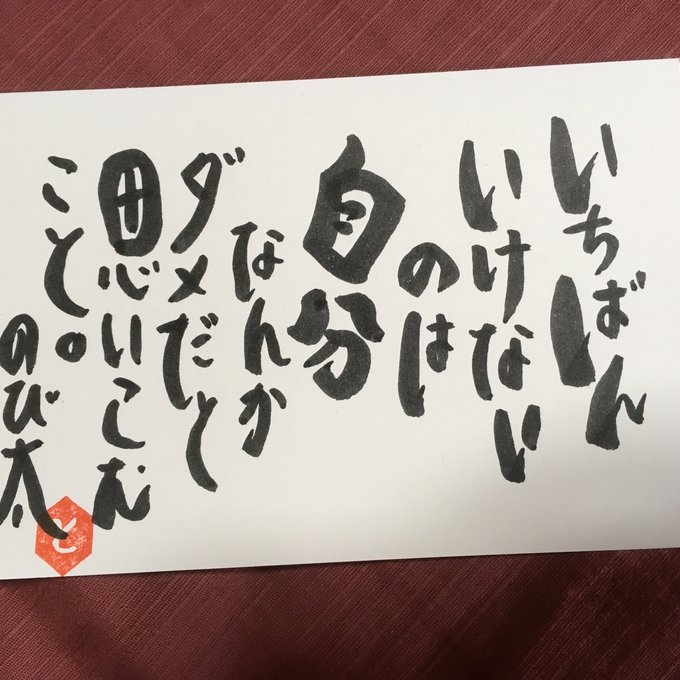 いちばん
いけない
のは
自分
なんか
ダメだと
思いこむ
こと。
のび太
と